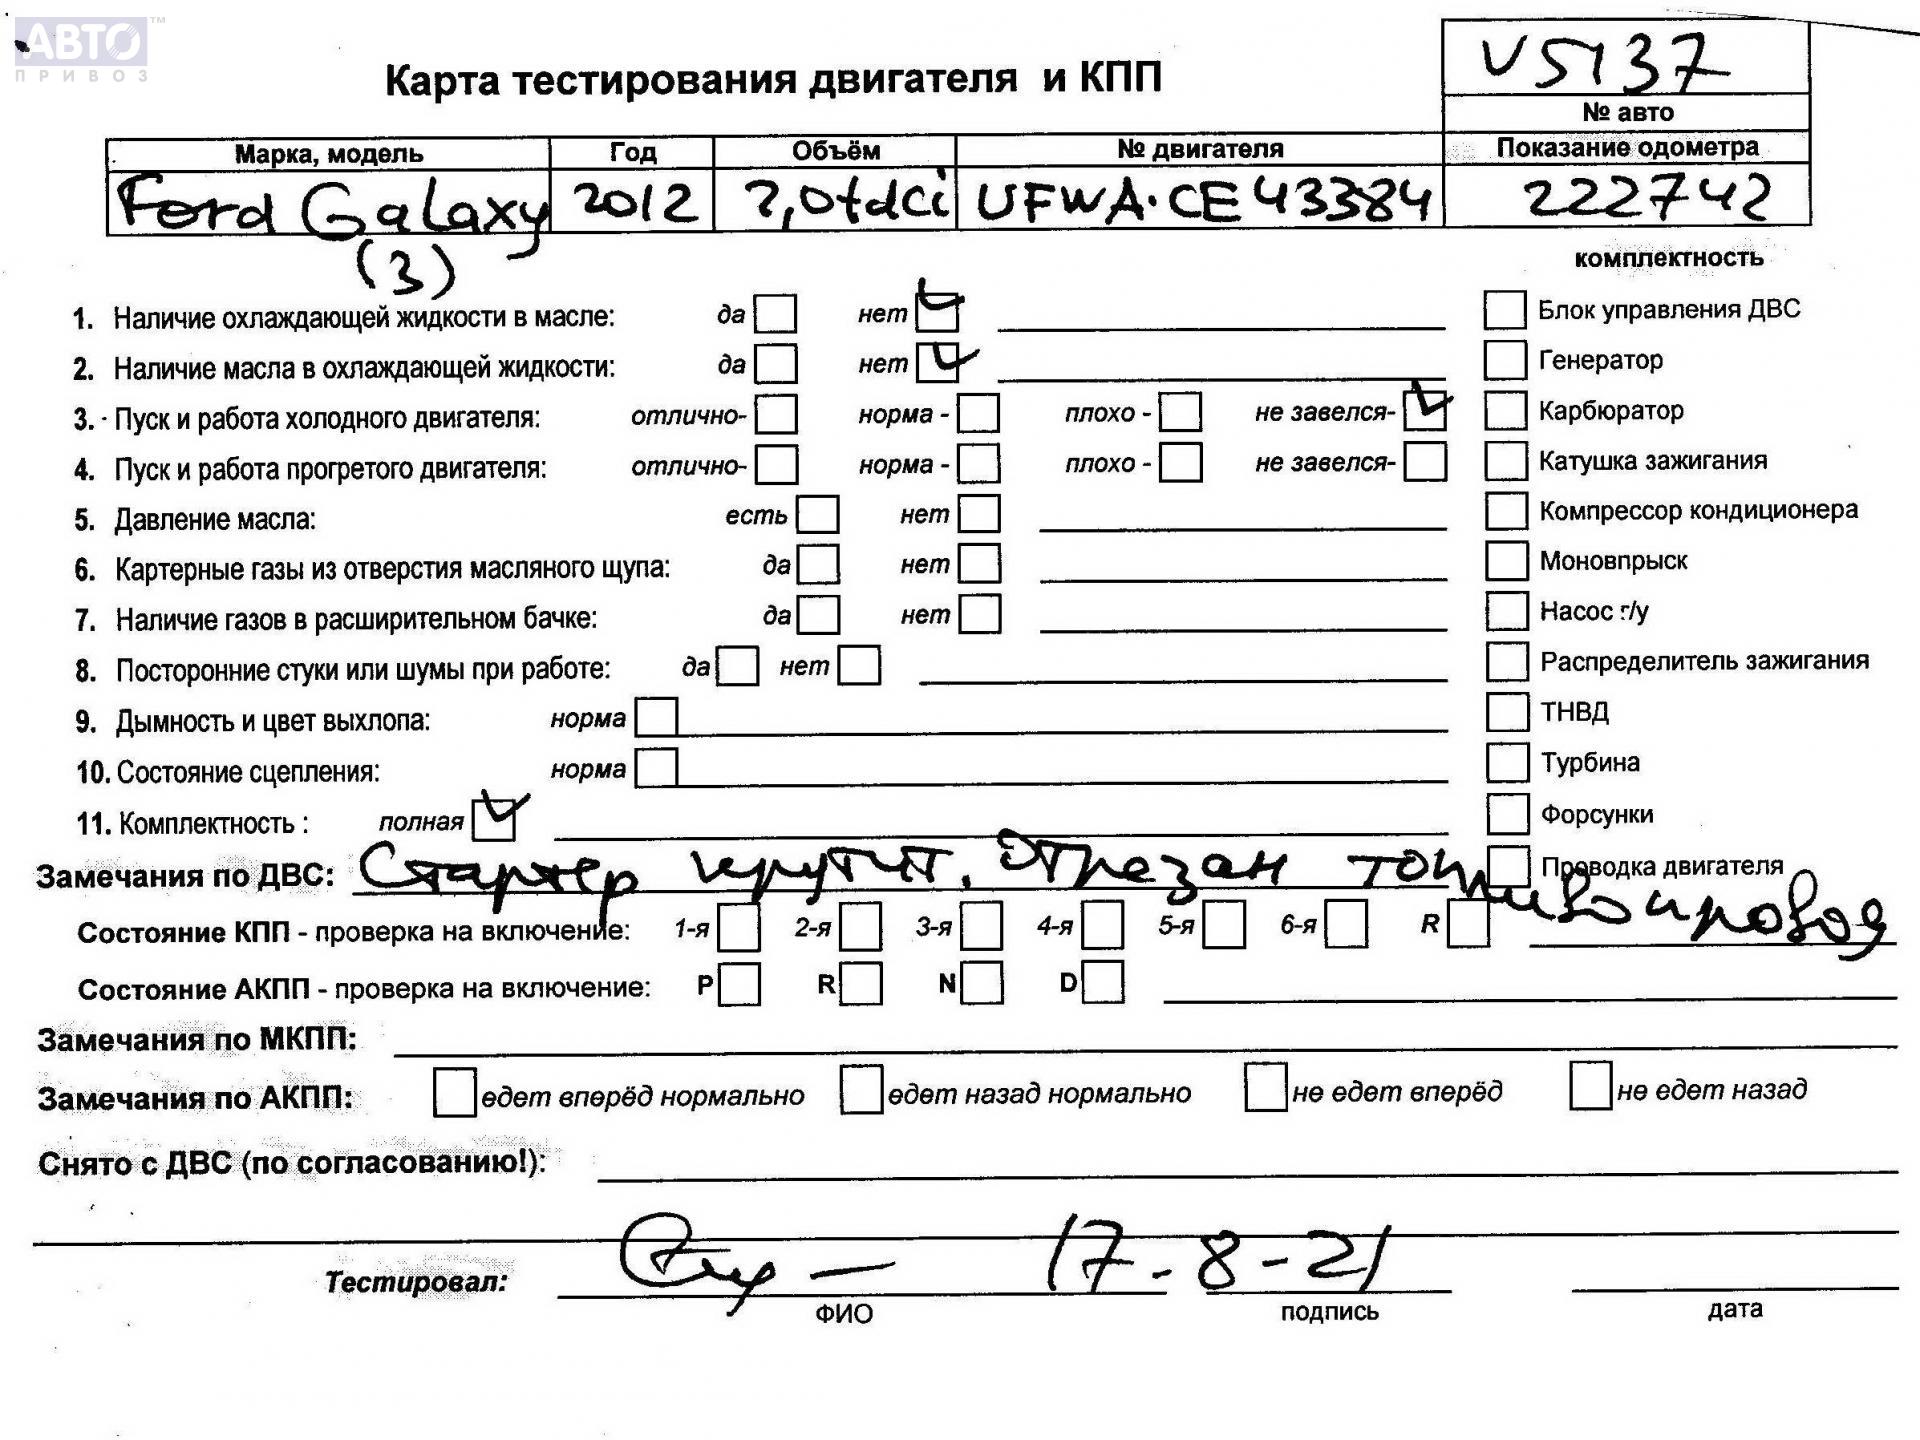 АВТО™
ПРИВОЗ
V5137
Карта тестирования двигателя и КПП
№ авто
Марка, модель Год Объём № двигателя Показание одометра
Ford Galaxy 2012 2,0tdci UFWA·CE43384 222742
(3)
комплектность
1. Наличие охлаждающей жидкости в масле: да нет Блок управления ДВС
2. Наличие масла в охлаждающей жидкости: да нет Генератор
3. Пуск и работа холодного двигателя: отлично- норма - плохо - не завелся- Карбюратор
4. Пуск и работа прогретого двигателя: отлично- норма - плохо - не завелся- Катушка зажигания
5. Давление масла: есть нет Компрессор кондиционера
6. Картерные газы из отверстия масляного щупа: да нет Моновпрыск
7. Наличие газов в расширительном бачке: да нет Насос г/у
8. Посторонние стуки или шумы при работе: да нет Распределитель зажигания
9. Дымность и цвет выхлопа: норма ТНВД
10. Состояние сцепления: норма Турбина
11. Комплектность : полная Форсунки
Замечания по ДВС: Стартер крутит, Отрезан топливопровод Проводка двигателя
Состояние КПП - проверка на включение: 1-я 2-я 3-я 4-я 5-я 6-я R
Состояние АКПП - проверка на включение: P R N D
Замечания по МКПП:
Замечания по АКПП: едет вперёд нормально едет назад нормально не едет вперёд не едет назад
Снято с ДВС (по согласованию!):
Тестировал: 17-8-21
ФИО подпись дата